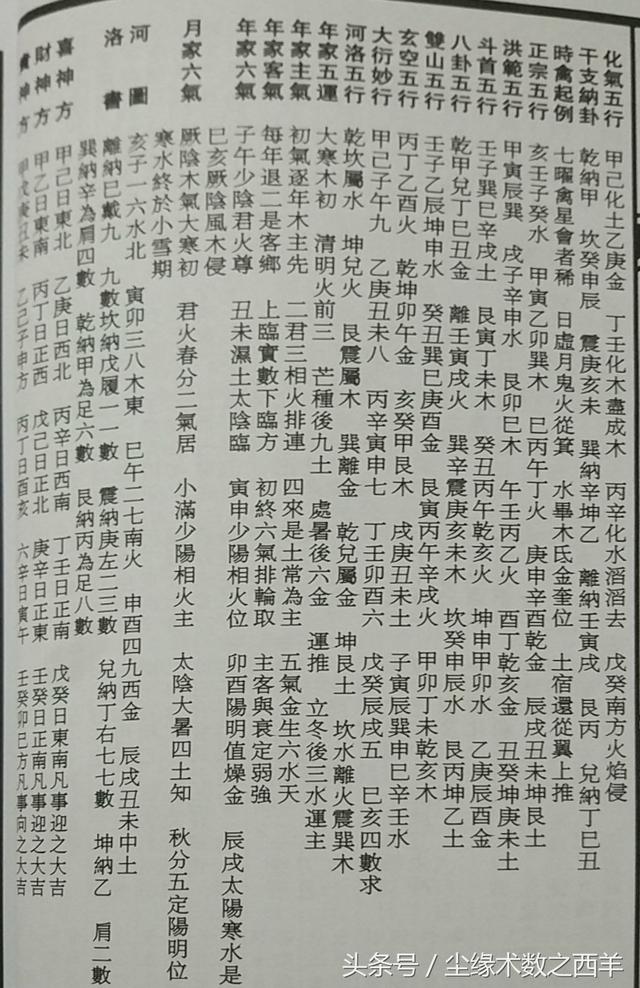 化氣五行 甲己化土乙庚金 丁壬化木盡成木 丙辛化水滔滔去 戊癸南方火焰侵
干支納卦 乾納甲 坎癸申辰 震庚亥未 巽納辛坤乙 離納壬寅戌 艮丙 兌納丁巳丑
時禽起例 七曜禽星會者稀 日虛月鬼火從箕 水畢木氐金奎位 土宿還從翼上推
正宗五行 亥壬子癸水 甲寅乙卯巽木 巳丙午丁火 庚申辛酉乾金 辰戌丑未坤艮土
洪範五行 甲寅辰巽 戌子辛申水 艮卯巳木 午壬丙乙火 酉丁乾亥金 丑癸坤庚未土
斗首五行 壬子巽巳辛戌土 艮寅丁未木 癸丑丙午乾亥火 坤申甲卯水 乙庚辰酉金
八卦五行 乾甲兌丁巳丑金 離壬寅戌火 巽辛震庚亥未木 坎癸申辰水 艮丙坤乙土
雙山五行 壬子乙辰坤申水 癸丑巽巳庚酉金 艮寅丙午辛戌火 甲卯丁未乾亥木
玄空五行 丙丁乙酉火 乾坤卯午金 亥癸甲艮木 戌庚丑未土 子寅辰巽申巳辛壬水
大衍妙行 甲己子午九 乙庚丑未八 丙辛寅申七 丁壬卯酉六 戊癸辰戌五 巳亥四數求
河洛五行 乾坎屬水 坤兌火 艮震屬木 巽離金 乾兌屬金 坤艮土 坎水離火震巽木
年家五運 大寒木初 清明火前三 芒種後九土 處暑後六金 運推 立冬後三水運主
年家主氣 初氣逐年木主先 二君三相火排連 四來是土常為主 五氣金生六水天
年家客氣 每年退二是客鄉 上臨實數下臨方 初終六氣排輪取 主客與衰定弱強
年家六氣 子午少陰君火尊 丑未濕土太陰臨 寅申少陽相火位 卯酉陽明值燥金 辰戌太陽寒水是
巳亥厥陰風木侵
月家六氣 厥陰木氣大寒初 君火春分二氣居 小滿少陽相火主 太陰大暑四土知 秋分五定陽明位
寒水終於小雪期
河圖 亥子一六水北 寅卯三八木東 巳午二七南火 申酉四九西金 辰戌丑未中土
洛書 離納巳戴九 九數坎納戊履一一數 震納庚左三三數 兌納丁右七七數 坤納乙 肩二數
巽納辛為肩四數 乾納甲為足六數 艮納丙為足八數
喜神方 甲己日東北 乙庚日西北 丙辛日西南 丁壬日正南 戊癸日東南凡事迎之大吉
財神方 甲乙日東南 丙丁日正西 戊己日正北 庚辛日正東 壬癸日正南凡事迎之大吉
神方 甲戊庚丑未 乙己子申方 丙丁日酉亥 六辛日寅午 壬癸卯巳方凡事向之大吉
头条号 / 尘缘术数之西羊